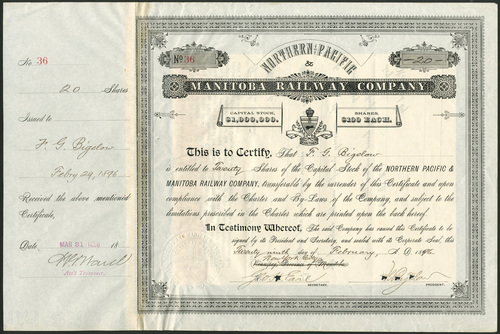 No 36
20 Shares
Issued to
F. G. Bigelow
Feby 29, 1896
Received the above mentioned
Certificate,
Date 18
Nº 36
NORTHERN PACIFIC
- 20 -
&
MANITOBA RAILWAY COMPANY
CAPITAL STOCK,
$1,000,000.
SHARES,
$100 EACH.
This is to Certify, That F. G. Bigelow
is entitled to Twenty Shares of the Capital Stock of the NORTHERN PACIFIC &
MANITOBA RAILWAY COMPANY, transferable by the surrender of this Certificate and upon
compliance with the Charter and By-Laws of the Company, and subject to the
limitations prescribed in the Charter which are printed upon the back hereof.
In Testimony Whereof, The said Company has caused this Certificate to be
signed by its President and Secretary, and sealed with its Corporate Seal, this
Twenty ninth day of February, A.D. 1896
New York City
SECRETARY.
PRESIDENT.